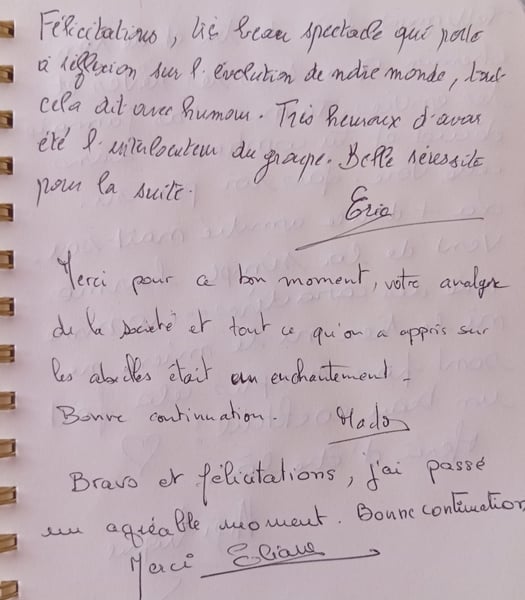 Félicitations, très beau spectacle qui porte
à réflexion sur l'évolution de notre monde, tout
cela dit avec humour. Très heureux d'avoir
été l'interlocuteur du groupe. Belle réussite
pour la suite.
Eric
Merci pour ce bon moment, votre analyse
de la société et tout ce qu'on a appris sur
les abeilles était un enchantement -
Bonne continuation.
Mado
Bravo et félicitations, j'ai passé
un agréable moment. Bonne continuation
Merci Eliane